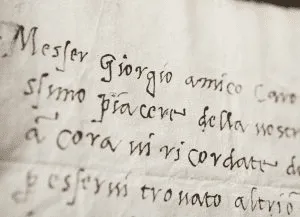 Messer giorgio amico Caro
ssimo piacere della vostr
ā cora vi ricordate d
p esservi trovato altrio